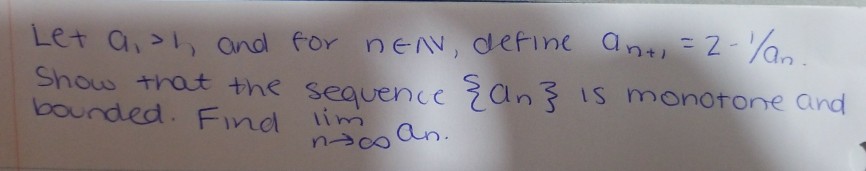 Let a₁ > 1, and for n ∈ IN, define aₙ₊₁ = 2 - 1/aₙ.
Show that the sequence {aₙ} is monotone and
bounded. Find lim n→∞ aₙ.